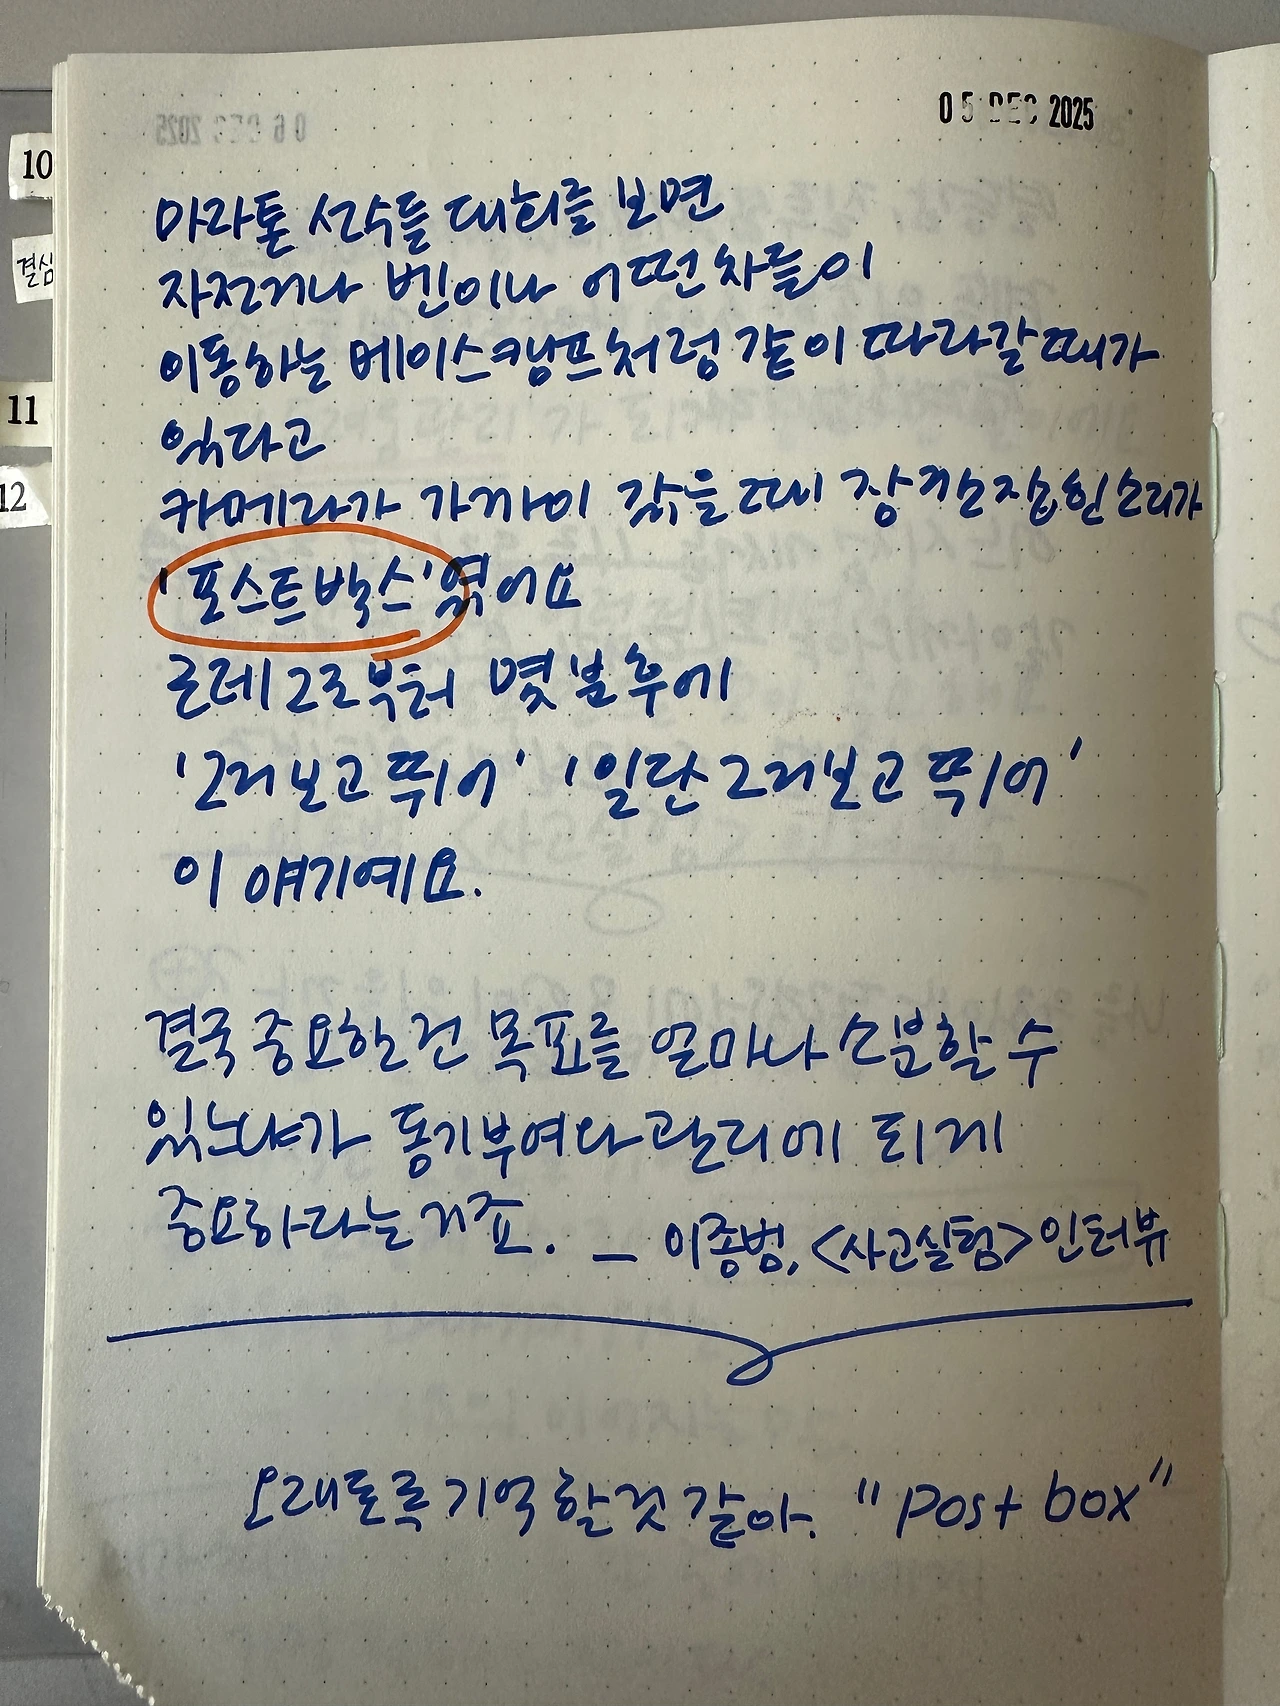 05 DEC 2025
10
결심
11
12
마라톤 선수들 대회를 보면
자전거나 벤이나 어떤 차들이
이동하는 베이스캠프처럼 같이 따라갈 때가
있다고
카메라가 가까이 갔을 때 잠깐 잡힌 소리가
'포스트박스'였어요
근데 그로부터 몇 분 후에
'그거 보고 뛰어' '일단 그거 보고 뛰어'
이 얘기예요.
결국 중요한 건 목표를 얼마나 소분할 수
있느냐가 동기부여와 관리에 되게
중요하라는 거죠. - 이종범, <사고실험> 인터뷰
오래도록 기억할 것 같아. "post box"